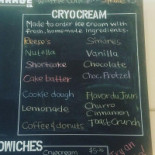 CRYO CREAM
Made to order ice cream with
fresh, homemade ingredients.
Reese's
S'mores
Nutella
Vanilla
Shortcake
Chocolate
Cake batter
Choc. Pretzel
Cookie dough
Flavor du Jour
Lemonade
Churro
Cinnamon
Coffee & donuts
Toast Crunch